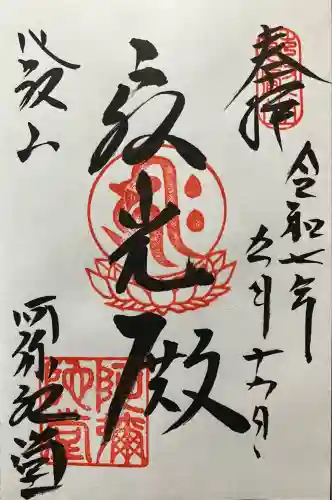 奉拝
令和七年
五月十六日
光殿
比叡山
阿弥陀堂
阿彌
陀堂